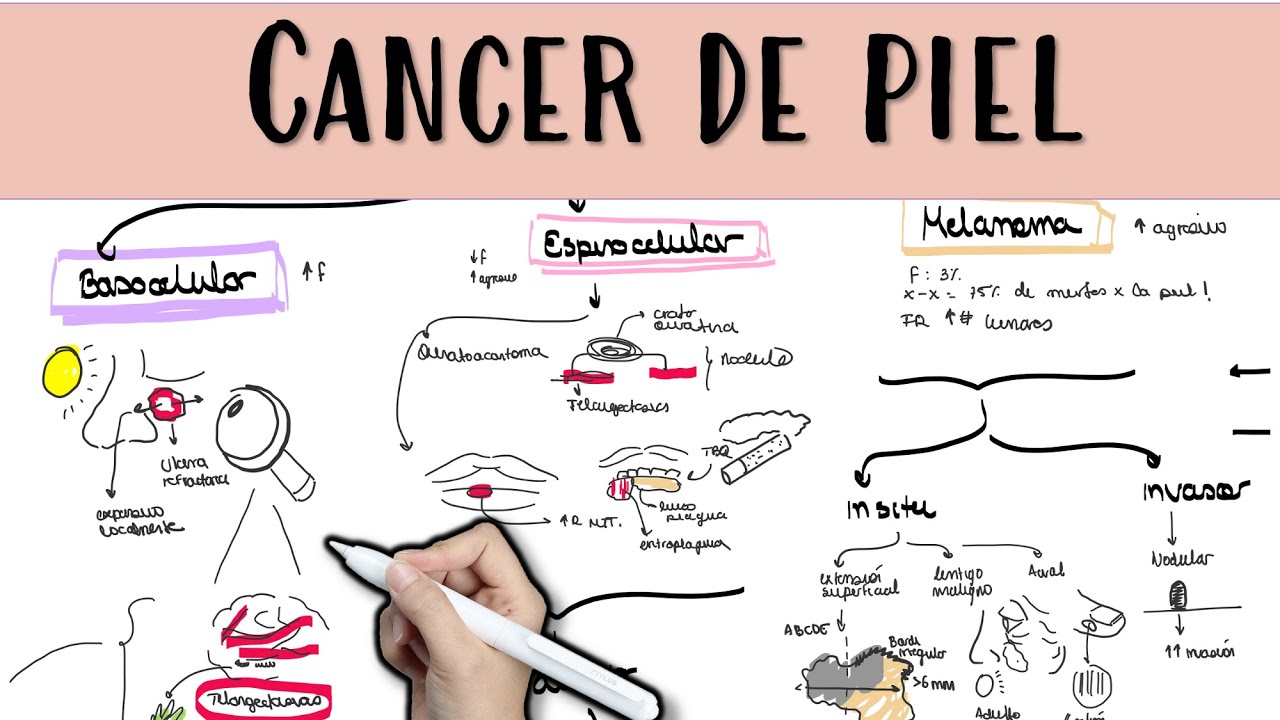 CANCER DE PIEL
Basocelular
↑ f
Ulcera
refractaria
expansivo
localmente
Telangectasias
Espinocelular
↓ f
↑ agresivo
Queratoacantoma
crater
queratina
Nodulo
Telangectasias
TBQ
↑ R MIT.
leuco
plaquia
entroplaquia
Melanoma
↑ agresivo
F: 3%
x-x = 75% de muertes x Ca piel!
↑ # lunares
In situ
Invasor
extensión
superficial
lentigo
maligno
Acral
Nodular
↑↑ invasión
ABCDE
Borde
irregular
>6mm
Adulto